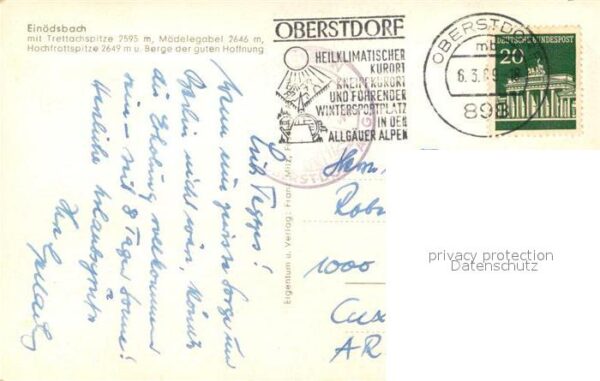 Einödsbach
mit Trettachspitze 2595 m, Mädelegabel 2646 m,
Hochfrottspitze 2649 m u. Berge der guten Hoffnung
OBERSTDORF
HEILKLIMATISCHER
KURORT
KNEIPPKURORT
UND FÜHRENDER
WINTERSPORTPLATZ
IN DEN
ALLGÄUER ALPEN
OBERSTDORF
6.3.69.-18
898
DEUTSCHE BUNDESPOST
20
Wenn ein gewisse Sorge um
Berlin nicht wär, könnte
die Erholung vollkommen
sein - mit 8 Tage Sonne!
Herzliche Urlaubsgrüße
Eigentum u. Verlag: Franz Milz,
Robe
1000
Cux
AR
privacy protection
Datenschutz